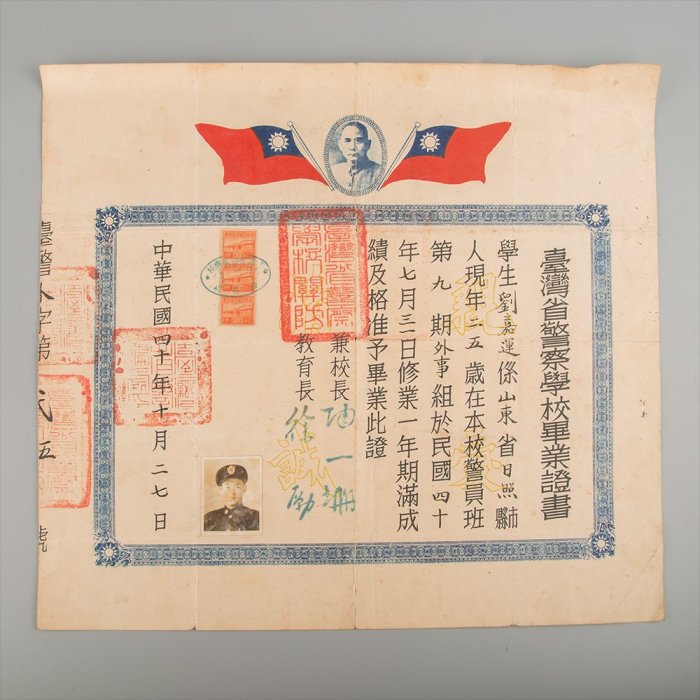 臺灣省警察學校畢業證書
學生劉嘉運係山東省日照縣市
人現年三五歲在本校警員班
第九期外事組於民國四十
年七月三一日修業一年期滿成
績及格准予畢業此證
兼校長陶一珊
教育長徐勛
親
誠
中華民國四十年十月二七日
號